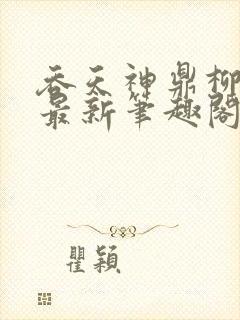 吞天神鼎柳
最新笔趣閣
瞿穎